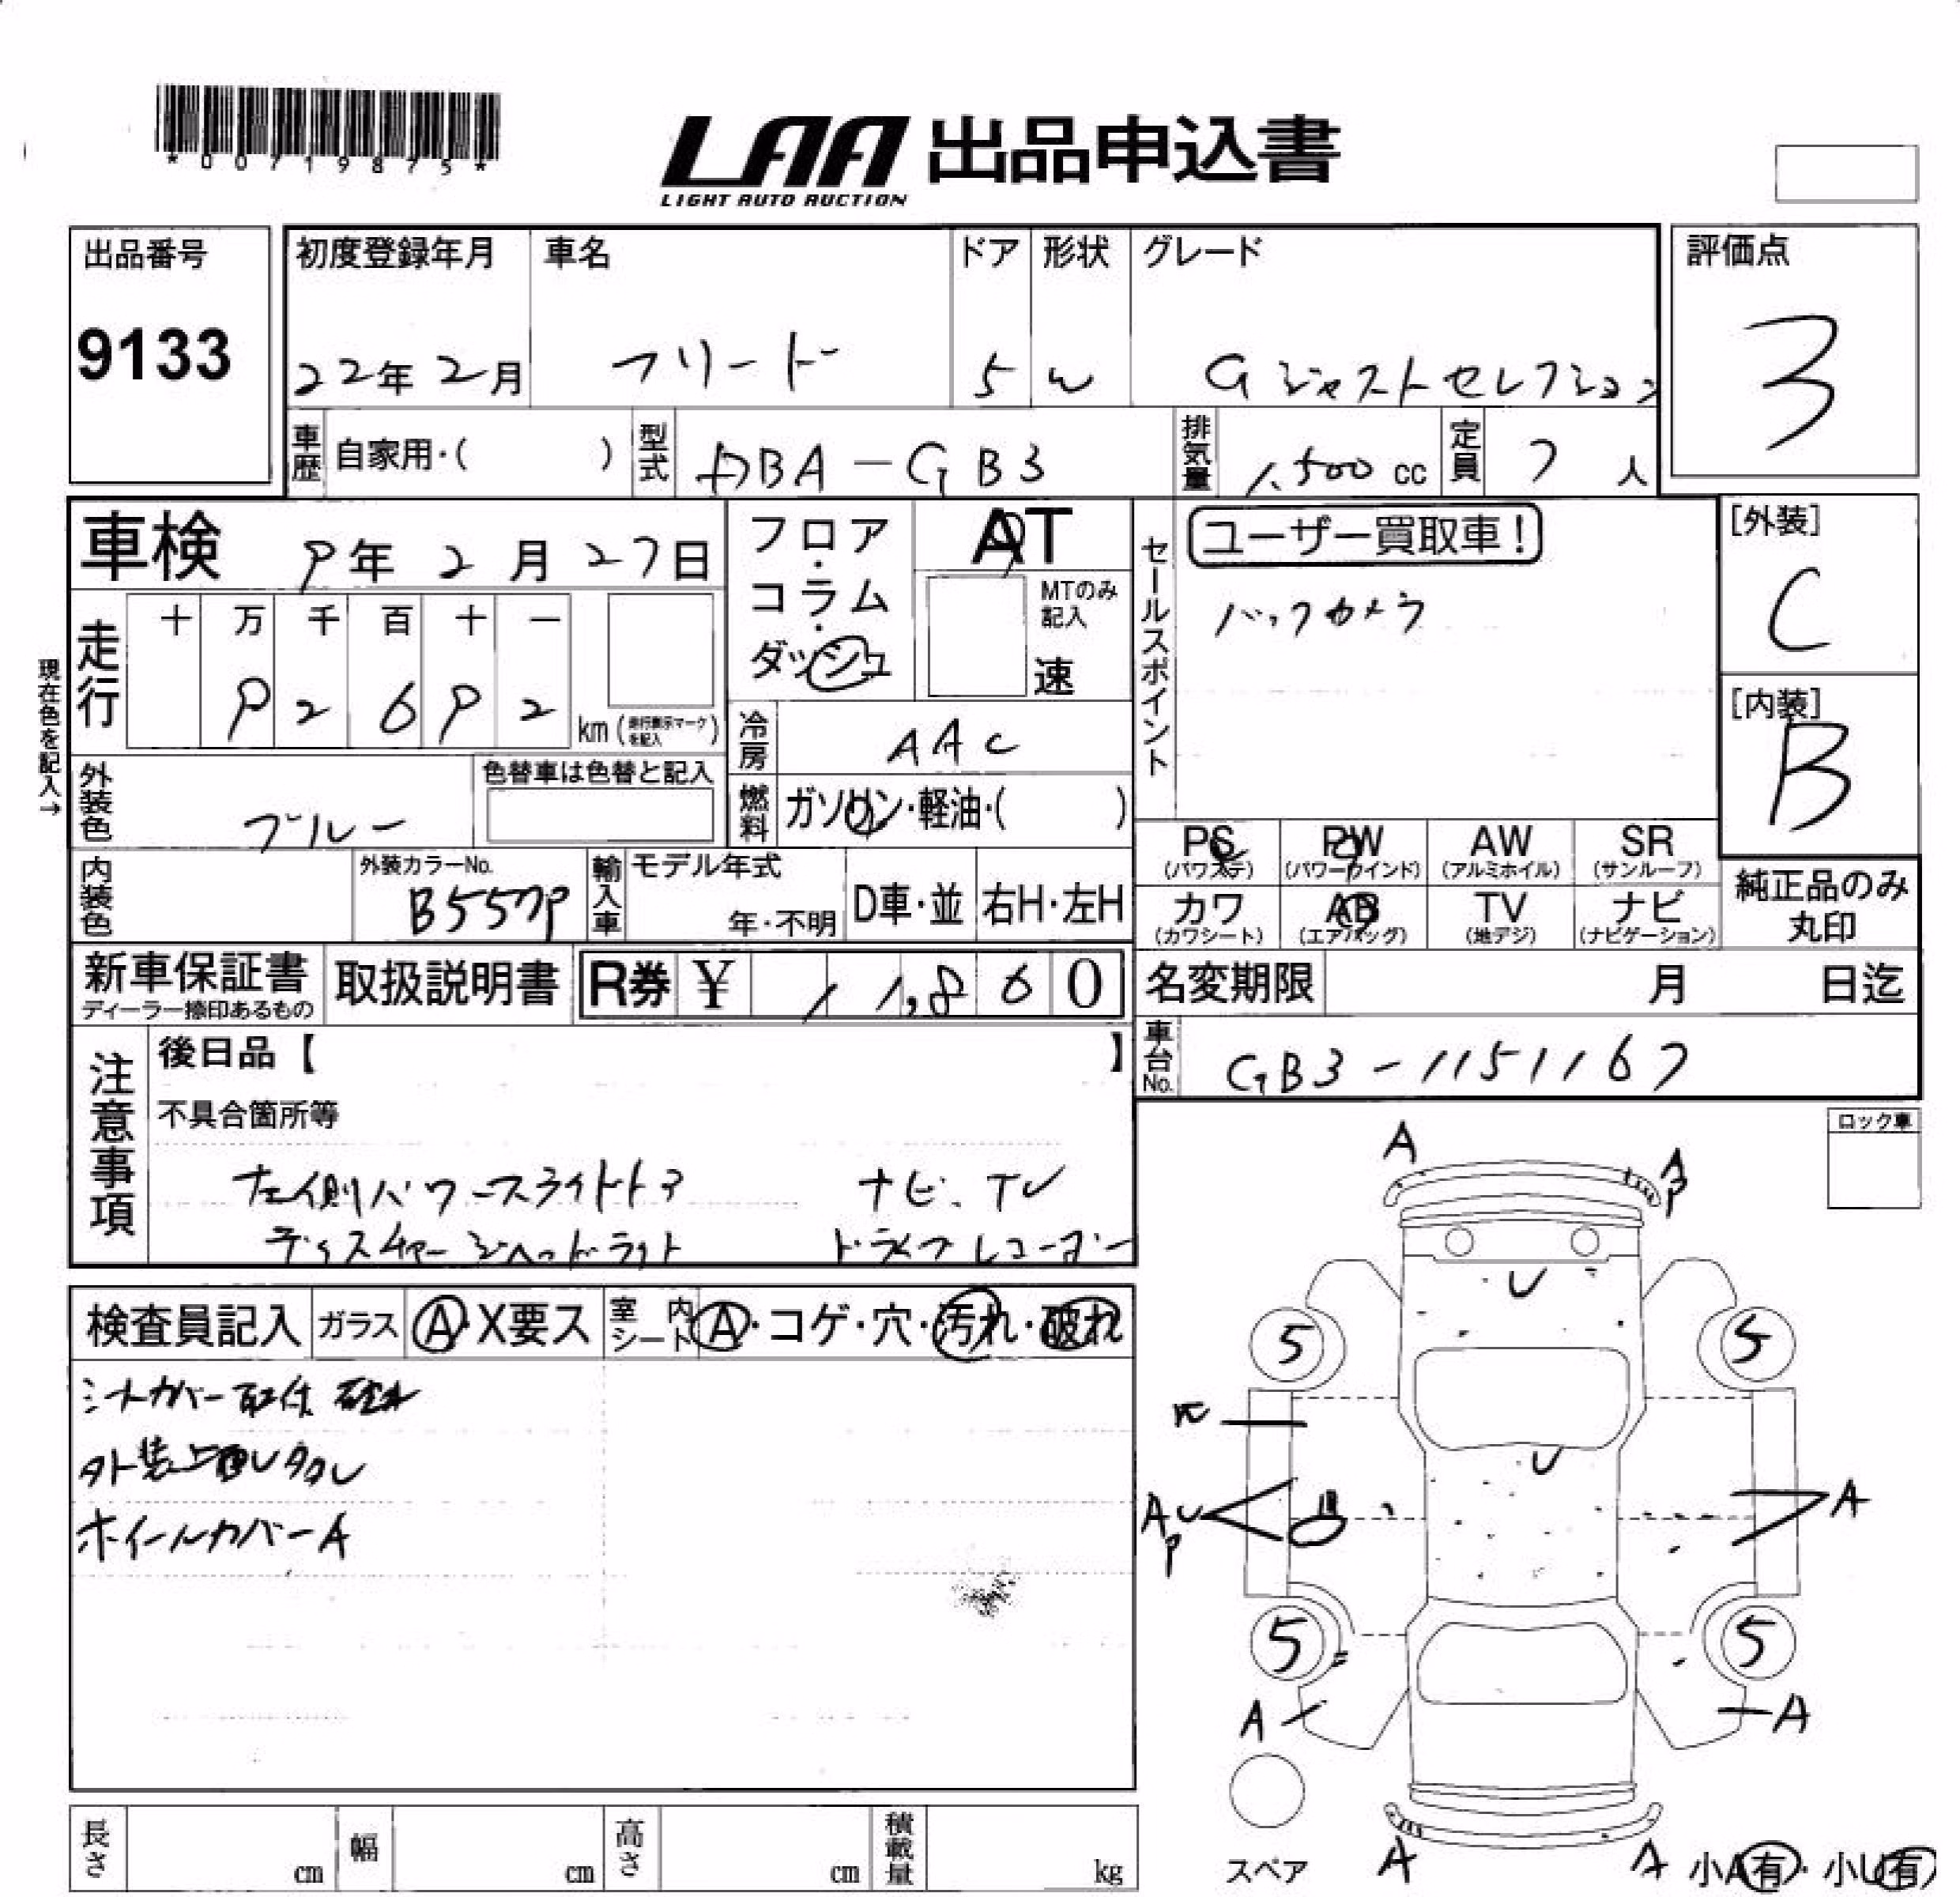 *00719875*
LAA 出品申込書
LIGHT AUTO AUCTION
出品番号
9133
初度登録年月
22年 2月
車名
フリード
ドア
5
形状
W
グレード
G ジャストセレクション
評価点
3
車歴
自家用・( )
型式
DBA-GB3
排気量
1,500 cc
定員
7 人
車検
9年 2月 27日
フロア・コラム・ダッシュ
AT
MTのみ記入
速
セールスポイント
ユーザー買取車!
バックカメラ
[外装]
C
[内装]
B
走行
十 万 千 百 十 一
9 2 6 9 2
km (走行表示マークを記入)
現在色を記入→
冷房
AAC
外装色
ブルー
色替車は色替と記入
燃料
ガソリン・軽油・( )
PS
(パワステ)
PW
(パワーウインド)
AW
(アルミホイル)
SR
(サンルーフ)
カワ
(カワシート)
AB
(エアバッグ)
TV
(地デジ)
ナビ
(ナビゲーション)
純正品のみ
丸印
内装色
外装カラーNo.
B557P
輸入車
モデル年式
年・不明
D車・並
右H・左H
新車保証書
ディーラー捺印あるもの
取扱説明書
R券 ¥ 1 1,8 6 0
名変期限
月 日迄
車台No.
GB3-1151167
注意事項
後日品【 】
不具合箇所等
左側パワースライドドア ナビ、TV
ディスチャージヘッドライト ドライブレコーダー
ロック車
検査員記入
ガラス
A・X要ス
室内シート
A・コゲ・穴・汚れ・破れ
シートカバー取付
外装上面
ホイールカバーA
A
A
P
U
5
5
U
A U
P
A
5
5
A
A
スペア
A
A
小A有・小U有
長さ
cm
幅
cm
高さ
cm
積載量
kg